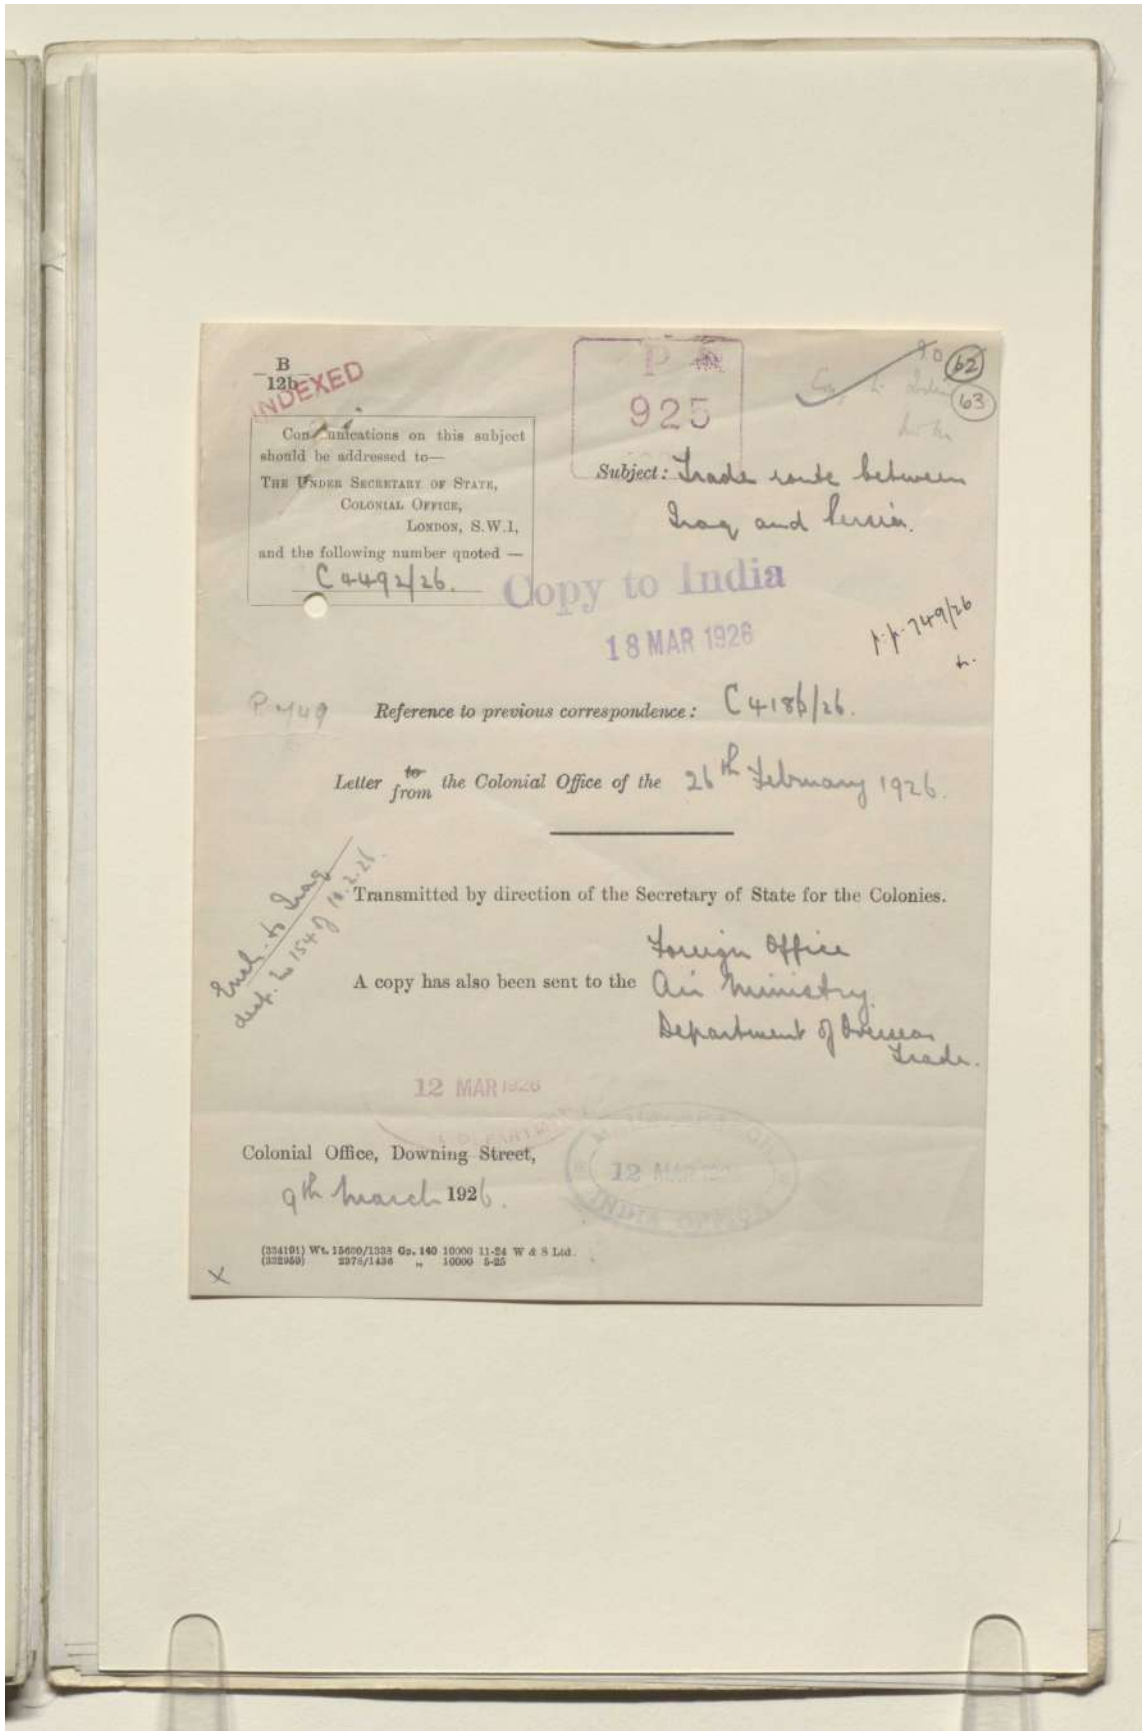 B
12b
INDEXED
P
925
62
63
Communications on this subject
should be addressed to—
THE UNDER SECRETARY OF STATE,
COLONIAL OFFICE,
LONDON, S.W.1,
and the following number quoted —
C 4492/26.
Subject: Trade route between
Iraq and Persia.
Copy to India
18 MAR 1926
p.p. 749/26
P 749
Reference to previous correspondence: C 4186/26.
Letter to from the Colonial Office of the 26th February 1926.
Encl. to Iraq
desp. No 154 of
Transmitted by direction of the Secretary of State for the Colonies.
A copy has also been sent to the Foreign Office
Air Ministry.
Department of Overseas
Trade.
12 MAR 1926
Colonial Office, Downing Street,
12 MAR
INDIA OFFICE
9th March 1926.
(334191) Wt. 15600/1338 Gp. 140 10000 11-24 W & S Ltd.
(332959) 2378/1436 „ 10000 5-25
X